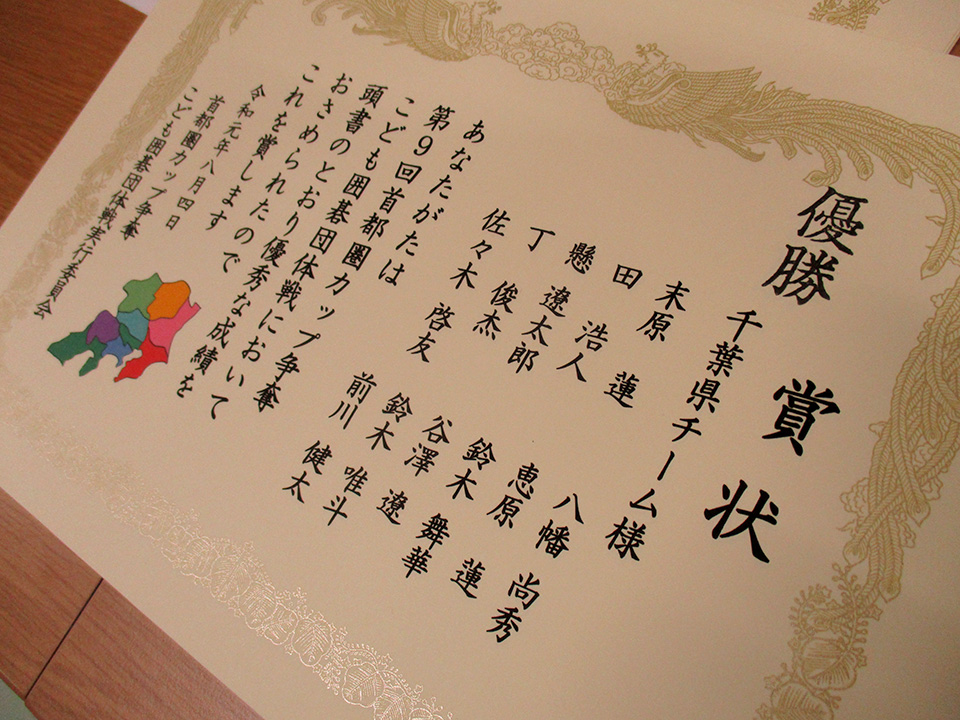 賞状
優勝
千葉県チーム様
末原 蓮 八幡 尚秀
田 浩人 恵原 蓮
懸 遼太郎 鈴木 舞華
丁 俊杰 谷澤 遼
佐々木 啓友 鈴木 唯斗
前川 健太
あなたがたは
第9回首都圏カップ争奪
こども囲碁団体戦において
頭書のとおり優秀な成績を
おさめられたので
これを賞します
令和元年八月四日
首都圏カップ争奪
こども囲碁団体戦実行委員会